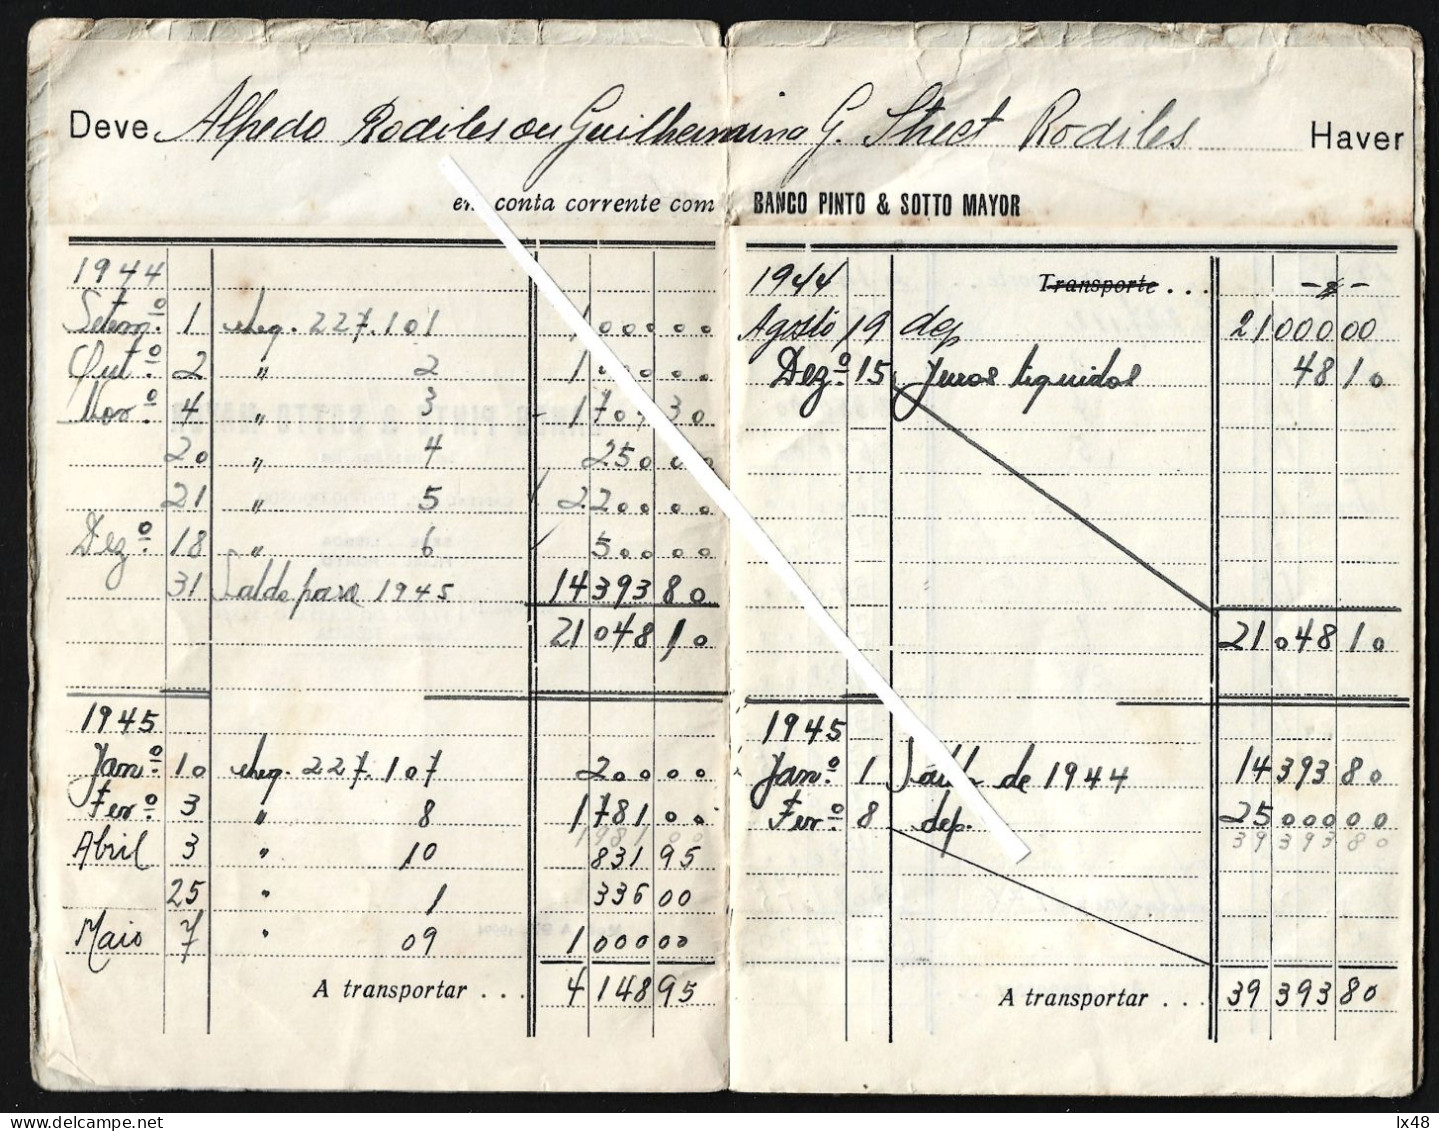 Deve Alfredo Rodiles ou Guilhermina G. Street Rodiles Haver
em conta corrente com BANCO PINTO & SOTTO MAYOR
1944
Setemº 1 cheq. 227.101 1 000 00
Outº 2 " 2 1 000 00
Novº 4 " 3 1 707 30
20 " 4 250 00
21 " 5 2 200 00
Dezº 18 " 6 500 00
31 Saldo para 1945 14 393 80
21 048 10
1945
Janº 10 cheq. 227.107 200 00
Fevº 3 " 8 1 781 00
1981 00
Abril 3 " 10 831 95
25 " 1 336 00
Maio 7 " 09 1 000 00
A transportar . . . 4 148 95
1944 Transporte . . .
Agosto 19 dep 21 000 00
Dezº 15 Juros liquidos 48 10
21 048 10
1945
Janº 1 Saldo de 1944 14 393 80
Fevº 8 dep. 25 000 00
39 393 80
A transportar . . . 39 393 80
lx48